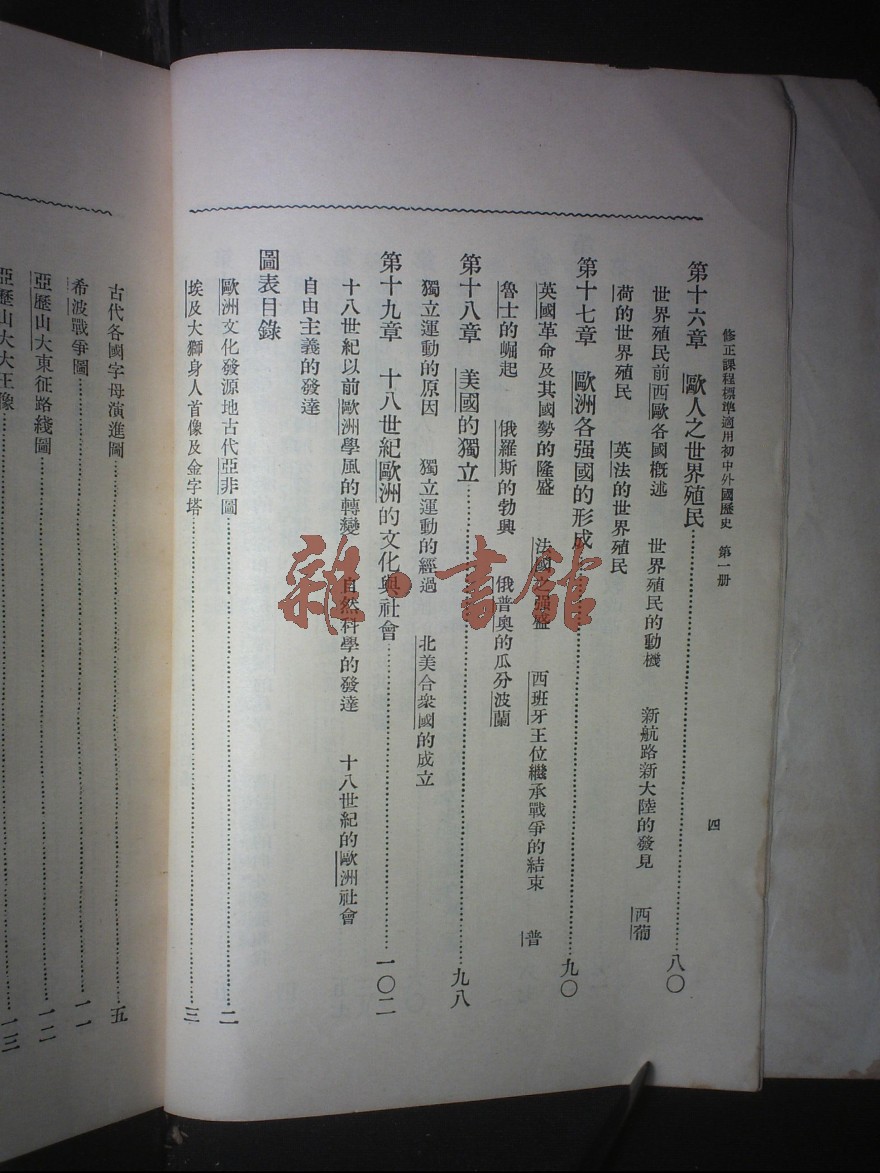 修正課程標準適用初中外國歷史　第一册
四
第十六章　歐人之世界殖民……八〇
世界殖民前西歐各國概述　世界殖民的動機　新航路新大陸的發見　西葡
荷的世界殖民　英法的世界殖民
第十七章　歐洲各强國的形成……九〇
英國革命及其國勢的隆盛　法國之强盛　西班牙王位繼承戰爭的結束　普
魯士的崛起　俄羅斯的勃興　俄普奧的瓜分波蘭
第十八章　美國的獨立……九八
獨立運動的原因　獨立運動的經過　北美合衆國的成立
第十九章　十八世紀歐洲的文化與社會……一〇二
十八世紀以前歐洲學風的轉變　自然科學的發達　十八世紀的歐洲社會
自由主義的發達
圖表目錄
歐洲文化發源地古代亞非圖……二
埃及大獅身人首像及金字塔……三
古代各國字母演進圖……五
希波戰爭圖……一一
亞歷山大東征路綫圖……一二
亞歷山大大王像……一三
雜·書館